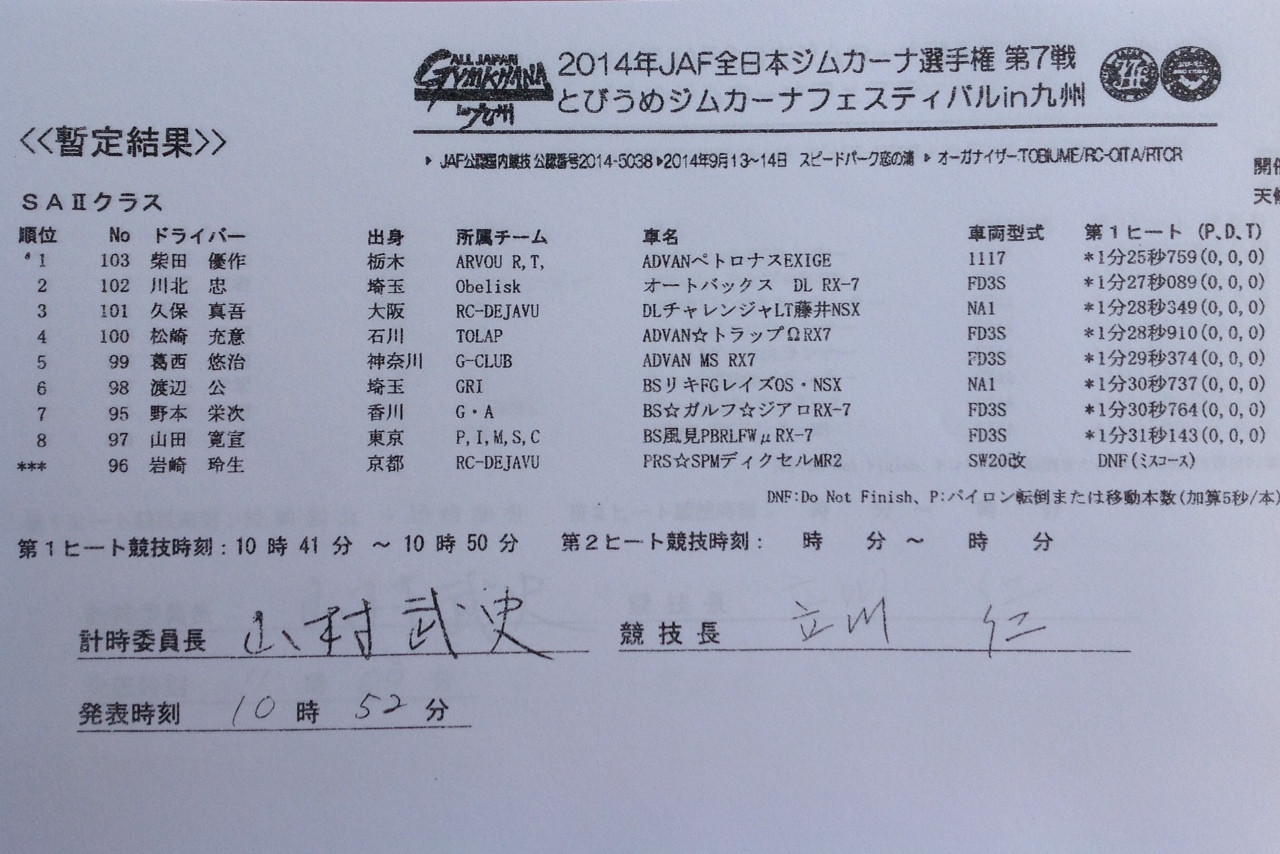 ALL JAPAN
GYMKHANA
in九州
2014年JAF全日本ジムカーナ選手権 第7戦
とびうめジムカーナフェスティバルin九州
<<暫定結果>>
▶ JAF公認国内競技 公認番号2014-5038▶2014年9月13~14日 スピードパーク恋の浦 ▶ オーガナイザー:TOBIUME/RC-OITA/RTCR
開催
天候
SAⅡクラス
順位 No ドライバー 出身 所属チーム 車名 車両型式 第1ヒート (P,D,T)
1 103 柴田 優作 栃木 ARVOU R,T, ADVANペトロナスEXIGE 1117 *1分25秒759(0,0,0)
2 102 川北 忠 埼玉 Obelisk オートバックス DL RX-7 FD3S *1分27秒089(0,0,0)
3 101 久保 真吾 大阪 RC-DEJAVU DLチャレンジャLT藤井NSX NA1 *1分28秒349(0,0,0)
4 100 松崎 充意 石川 TOLAP ADVAN☆トラップΩRX7 FD3S *1分28秒910(0,0,0)
5 99 葛西 悠治 神奈川 G-CLUB ADVAN MS RX7 FD3S *1分29秒374(0,0,0)
6 98 渡辺 公 埼玉 GRI BSリキFGレイズOS・NSX NA1 *1分30秒737(0,0,0)
7 95 野本 栄次 香川 G・A BS☆ガルフ☆ジアロRX-7 FD3S *1分30秒764(0,0,0)
8 97 山田 寛宣 東京 P,I,M,S,C BS風見PBRLFWμRX-7 FD3S *1分31秒143(0,0,0)
*** 96 岩崎 玲生 京都 RC-DEJAVU PRS☆SPMディクセルMR2 SW20改 DNF(ミスコース)
DNF:Do Not Finish、P:パイロン転倒または移動本数(加算5秒/本)
第1ヒート競技時刻:10 時 41 分 ~ 10 時 50 分 第2ヒート競技時刻: 時 分 ~ 時 分
計時委員長 山村武史 競技長 立川 仁
発表時刻 10 時 52 分